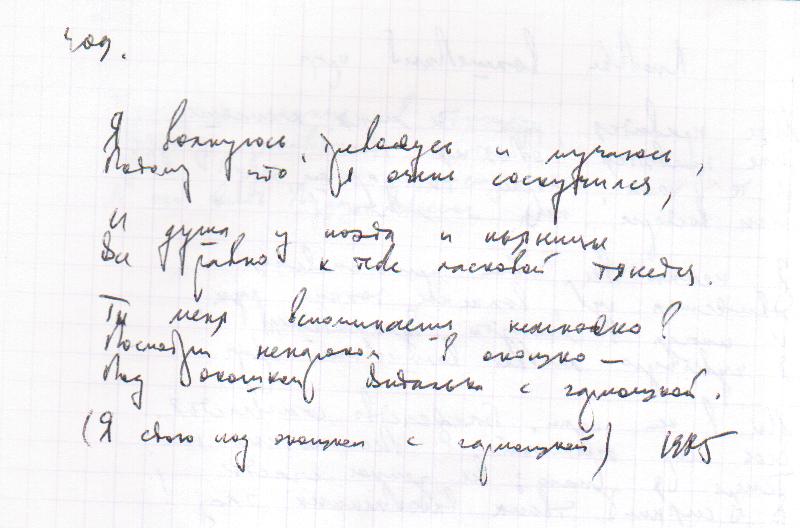 Я волнуюсь, тревожусь и мучаюсь,
Потому что я очень соскучился,
И душа у поэта и пьяницы
Все равно к тебе ласковой тянется.
Ты меня вспоминаешь немножко?
Посмотри ненароком в окошко —
Под окошком Виталька с гармошкой.
(Я стою под окошком с гармошкой) 1985